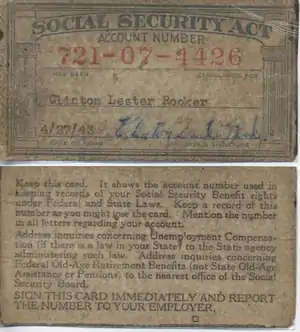 SOCIAL SECURITY ACT
ACCOUNT NUMBER
721-07-4426
HAS BEEN ESTABLISHED FOR
Clinton Lester Booker
4/27/43
Keep this card. It shows the account number used in
keeping records of your Social Security Benefit rights
under Federal and State Laws. Keep a record of this
number as you might lose the card. Mention the number
in all letters regarding your account.
Address inquiries concerning Unemployment Compensa-
tion (if there is a law in your State) to the State agency
administering such law. Address inquiries concerning
Federal Old-Age Retirement Benefits (not State Old-Age
Assistance or Pensions) to the nearest office of the Social
Security Board.
SIGN THIS CARD IMMEDIATELY AND REPORT
THE NUMBER TO YOUR EMPLOYER.